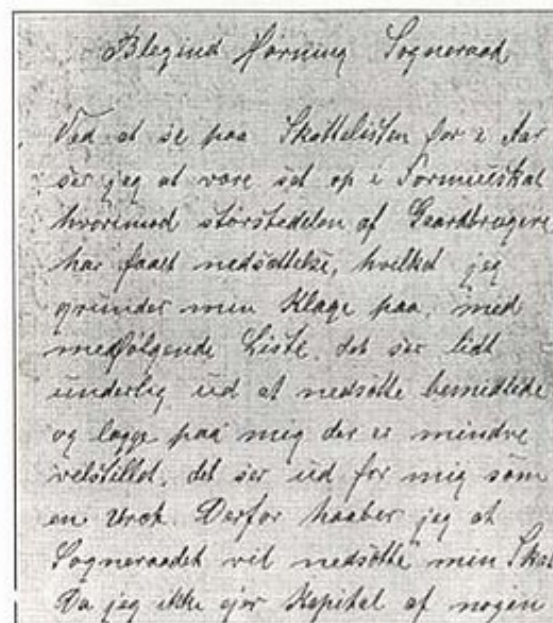 Blegind Hørning Sogneraad
Ved at se paa Skattelisten for i Aar
ser jeg at være sat op i Formueskat
hvorimod størstedelen af Gaardbrugere
har faaet nedsættelse, hvilket jeg
grunder min Klage paa, med
medfølgende Liste, det ser lidt
underlig ud at nedsætte bemidlede
og lægge paa mig der er mindre
velstillet, det ser ud for mig som
en Uret. Derfor haaber jeg at
Sogneraadet vil nedsætte min Skat
Da jeg ikke ejer Kapital af nogen